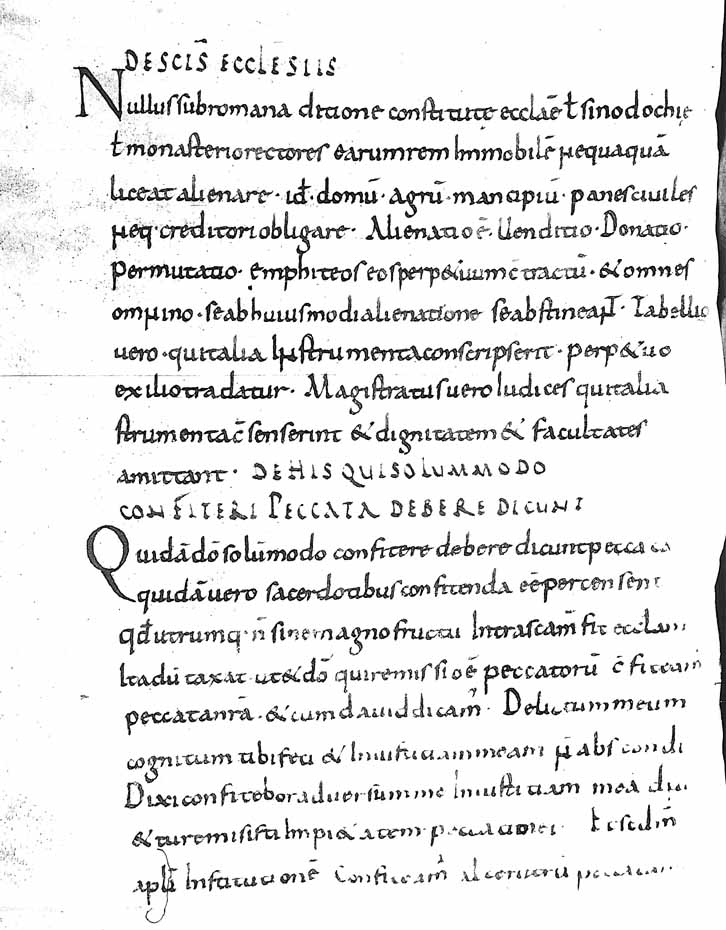 DE SCIS ECCLESIIS
Nullus sub romana ditione constitutę ecclaē ł sinodochię
ł monasterio rectores earum rem Immobilē nequaquā
liceat alienare · id̄ · domū · agrū · mancipiū · panes civiles
neq · creditori obligare · Alienatio ē Uenditio · Donatio ·
permutatio · emphiteoseos perp&uum c̄tractū · & omnes
omnino · se ab huiusmodi alienatione se abstineaNT · Tabellio
uero · qui talia Instrumenta conscripserit · perp&uo
exilio tradatur · Magistratus uero Iudices qui talia
strumenta c̄senserint & dignitatem & facultates
amittant · DE HIS QUI SOLUMMODO
CONFITERI PECCATA DEBERE DICUNT
Quidā dō solūmodo confitere debere dicunt pecca
quidā uero sacerdotibus confitenda eē percensent
qd̄ utrumq · n̄ sine magno fructu Intra scam̄ fit ecclam
Ita dū taxat ut & dō qui remissio ē peccatorū c̄fiteam̄
peccata nrā · & cum dauid dicam̄ · Delictum meum
cognitum tibi feci & Iniustitiam meam n̄ abscondi
Dixi confitebor aduersūm me Iniustitiam meā
& tu remisisti Impi&atem peccati mei
apli Institutionē Confiteam̄ alterutrū peccata